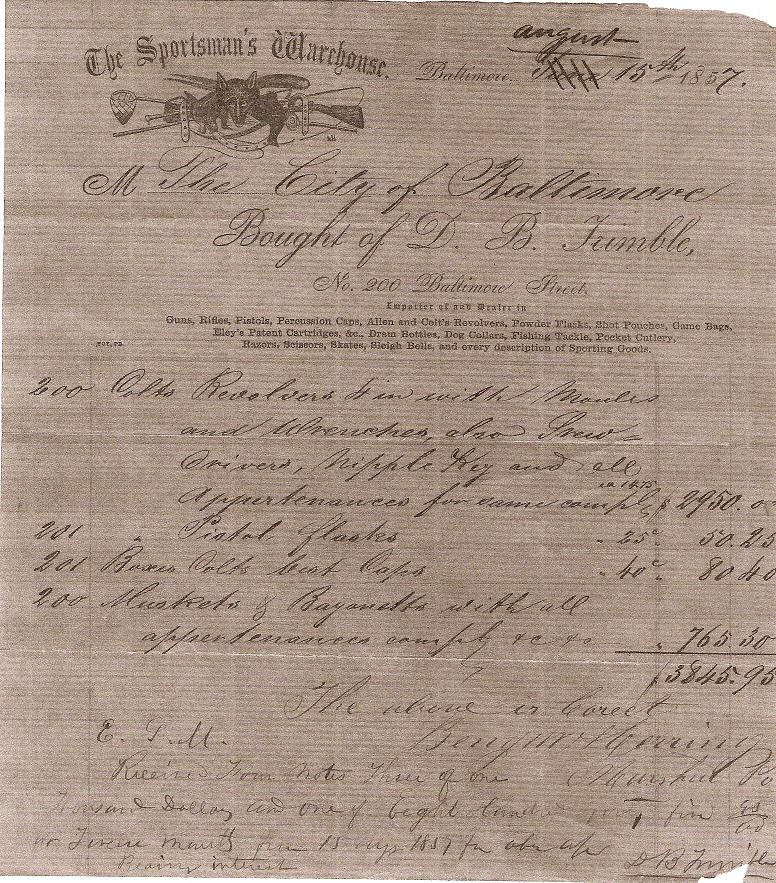 The Sportsman's Warehouse.
august
Baltimore. June 15th 1857.
M The City of Baltimore
Bought of D. B. Trimble,
No. 200 Baltimore Street.
Importer of and Dealer in
Guns, Rifles, Pistols, Percussion Caps, Allen and Colt's Revolvers, Powder Flasks, Shot Pouches, Game Bags,
Eley's Patent Cartridges, &c., Dram Bottles, Dog Collars, Fishing Tackle, Pocket Cutlery,
Razors, Scissors, Skates, Sleigh Bells, and every description of Sporting Goods.
200 Colts Revolvers 4 in with Moules
and Wrenches, also Screw=
drivers, Nipple Key and all
Appertenances for same compl, ea 14.75 $ 2950.0
201 " Pistol flasks " 25c " 50.25
201 Boxes Colts best Caps " 40c " 80 40
200 Muskets & Bayonetts with all
appertenances compl, &c &c " 765.30
$3845.95
The above is Corect
E. T. M. Benj Herring
Received Four Notes Three of one Marshal Po
Thousand Dollars and one of Eight Hundred five
Twelve months from 15 aug 1857 for above
Bearing interest D B Trimble